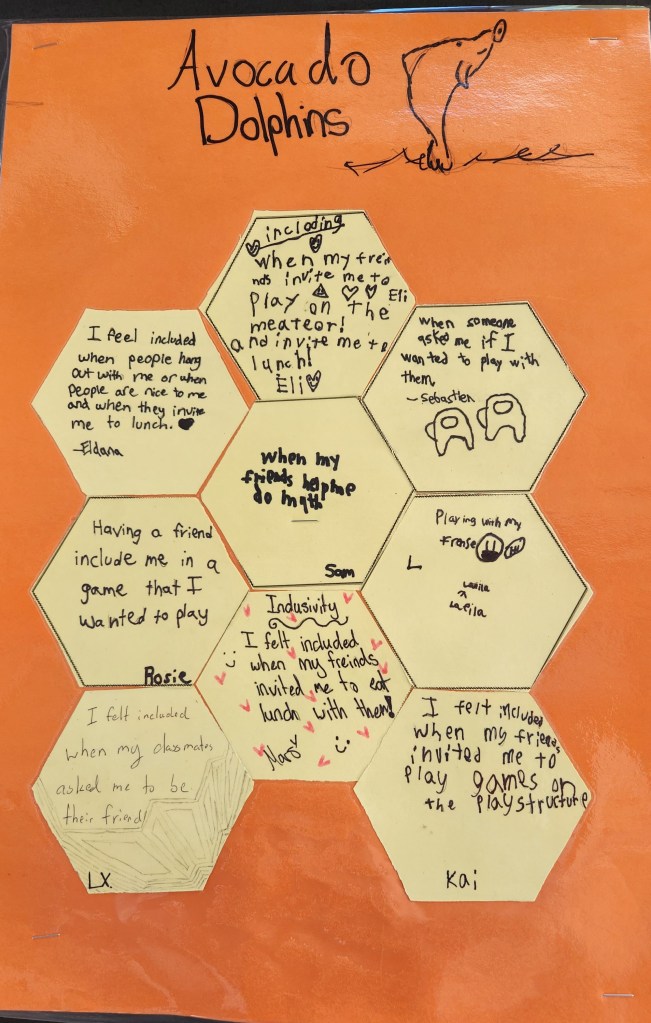 Avocado
Dolphins
incloding
when my frein
nds invite me to
play on the Eli
meateor!
and invite me to
lunch!
Eli
I feel included
when people hang
out with me or when
people are nice to me
and when they invite
me to lunch.
-Eldana
when someone
asked me if I
wanted to play with
them,
-Sebastien
when my
friends help me
do math
Sam
Having a friend
include me in a
game that I
wanted to play
Rosie
Playing with my
Frense
L
Laeila
Inclusivity
I felt included
when my freinds
invited me to eat
lunch with them!
I felt included
when my classmates
asked me to be
their friend!
LX.
I felt included
when my friends
invited me to
play games on
the playstructure
Kai